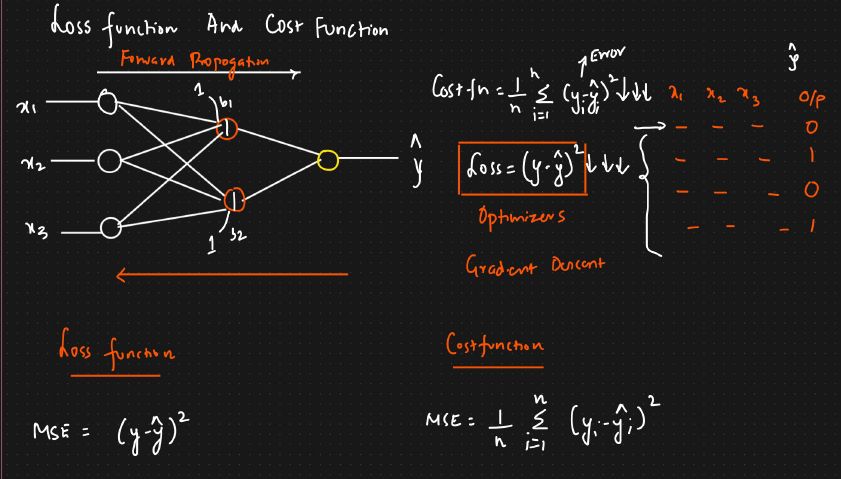 Loss function And Cost Function
Forward Propogation
x₁
x₂
x₃
1 b₁
1 b₂
ŷ
Cost fn = 1/n Σⁿᵢ₌₁ (yᵢ-ŷᵢ)² ↓↓↓
Error
Loss = (y-ŷ)² ↓↓↓
Optimizers
Gradient Descent
ŷ
x₁ x₂ x₃ O/P
→ - - - 0
- - - 1
- - - 0
- - - 1
Loss function
MSE = (y-ŷ)²
Cost function
MSE = 1/n Σⁿᵢ₌₁ (yᵢ-ŷᵢ)²